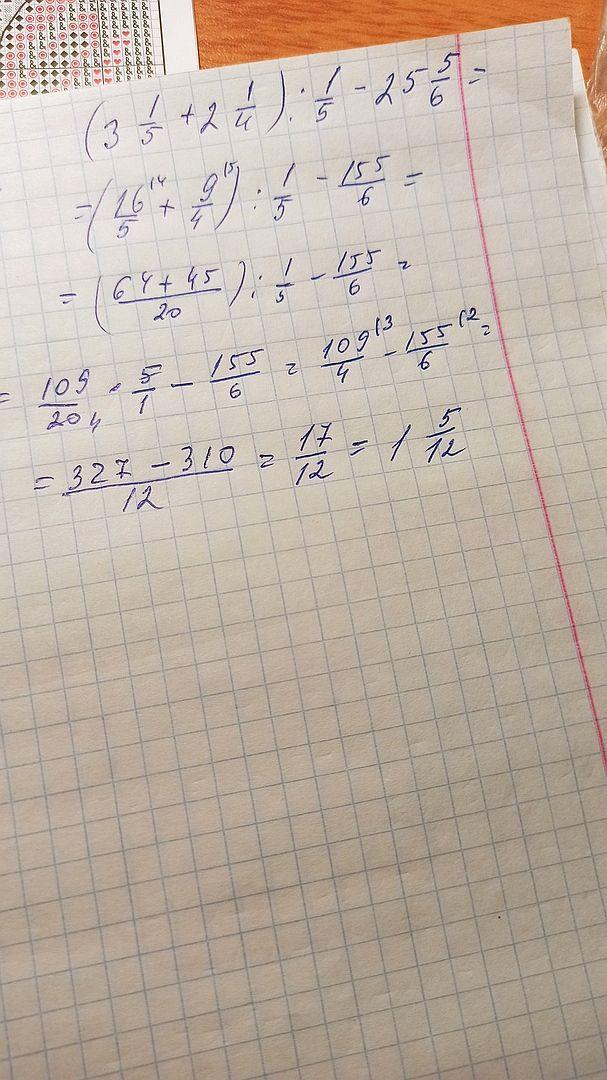 (3 1/5 + 2 1/4) : 1/5 - 25 5/6 =
= (16/5 (4 + 9/4 (5) : 1/5 - 155/6 =
= (64 + 45/20) : 1/5 - 155/6 =
= 109/20 4 · 5/1 - 155/6 = 109/4 (3 - 155/6 (2 =
= 327 - 310/12 = 17/12 = 1 5/12